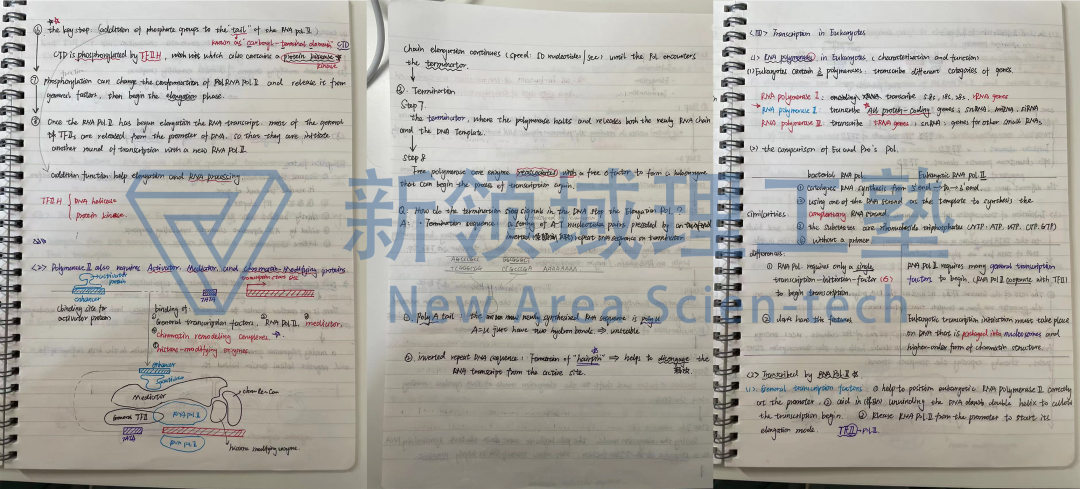 ⑥ the key step: (addition of phosphate groups to the "tail" of the RNA pol II)
known as "carboxyl-terminal domain" CTD
CTD is phosphorylated by TFIIH, which also contains a protein kinase
kinase
⑦ Phosphorylation can change the conformation of RNA Pol II and release is from
general factors, then begin the elongation phase.
⑧ Once the RNA Pol II has begun elongation the RNA transcript, most of the general
TFIIs are released from the promoter of DNA, so that they are initiate
another round of transcription with a new RNA Pol II.
addition function: help elongation and RNA processing
TFIIH { DNA helicase
protein kinase.
<2> Polymerase II also requires Activator, Mediator, and chromatin-modifying proteins
activator protein
transcription start site
enhancer
TATA
binding site for
activator protein
binding of
General transcription factors, RNA Pol II, mediator,
chromatin remodeling complexes,
histone-modifying enzymes
enhancer
Mediator
General TFII
RNA pol II
TATA
RNA pol II
histone modifying enzyme.
Chain elongation continues (speed: 50 nucleotides/sec) until the Pol encounters
the terminator.
③ Termination
Step 7
The terminator, where the polymerase halts and releases both the newly RNA chain
and the DNA Template.
Step 8
Free polymerase core enzyme reassociates with a free σ factor to form a holoenzyme
that can begin the process of transcription again.
Q: How do the termination signals in the DNA stop the Elongation Pol?
A: Termination sequence: a string of A-T nucleotide pairs preceded by an
inverted repeat DNA sequence on terminator
PolyA tail: the newly synthesised RNA sequence is poly U
A=U just have two hydron bonds. ⇒ unstable
② inverted repeat RNA sequence: Formation of "hairpin" ⇒ helps to disengage the
RNA transcript from the active site.
<III> Transcription in Eukaryotes
(1) RNA polymerases in Eukaryotes (characterisation and function)
(1) Eukaryotes contain 3 polymerases, transcribe different categories of genes.
RNA polymerase I: transcribe 5.8S, 18S, 28S, rRNA genes
RNA polymerase II: transcribe All protein-coding genes; snRNA, miRNA, siRNA
RNA polymerase III: transcribe tRNA genes; snRNA; genes for other small RNAs
(2) the comparison of Eu and Pro's Pol.
bacterial RNA pol
Eukaryotic RNA Pol II
similarities:
① catalyses RNA synthesis from 5' end → 3' end.
② using one of the DNA strand as the template to synthesis the
complementary RNA strand
③ the substrates are ribonucleoside triphosphates (ATP, UTP, CTP, GTP)
④ without a primer
differences:
① RNA Pol requires only a single
transcription-initiation-factor (σ)
to begin transcription
RNA Pol II requires many general transcription
factors to begin (RNA Pol II cooperate with TFII)
② don't have this features
Eukaryotic transcription initiation must take place
on DNA that is packaged into nucleosomes and
higher-order form of chromatin structure.
<2> Transcribed by RNA Pol II
(1) General transcription factors: ① help to position eukaryotic RNA polymerase II correctly
at the promoter. ② aid in unwinding the DNA double helix to allow
the transcription begin. ③ Release RNA Pol II from the promoter to start its
elongation mode. TFII - Pol II.
新领域理工塾
New Area Scien-Tech